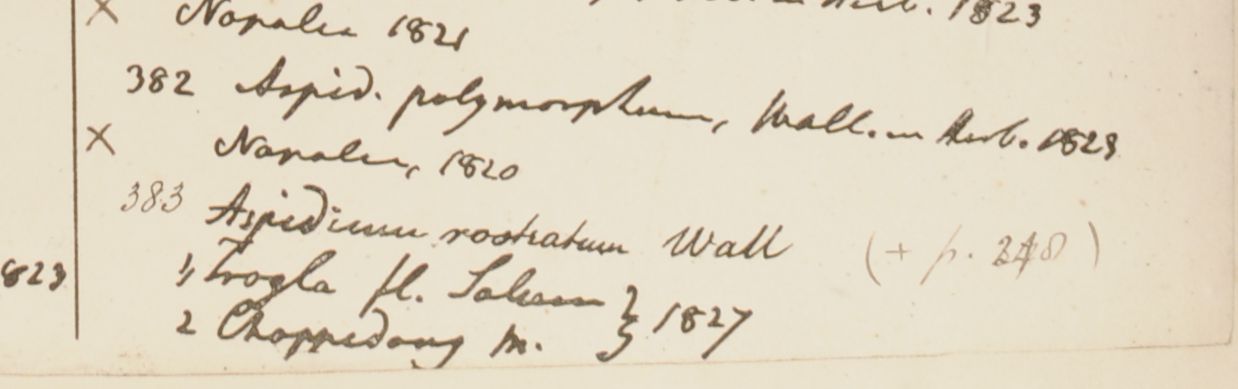 Herb. 1823
X Napalia 1821
382 Aspid. polymorphum, Wall. in Herb. 1823
X Napalia, 1820
383 Aspidium rostratum Wall (+ p. 248)
1, Trogla fl. Saluen } 1827
2 Chappedong m.
823